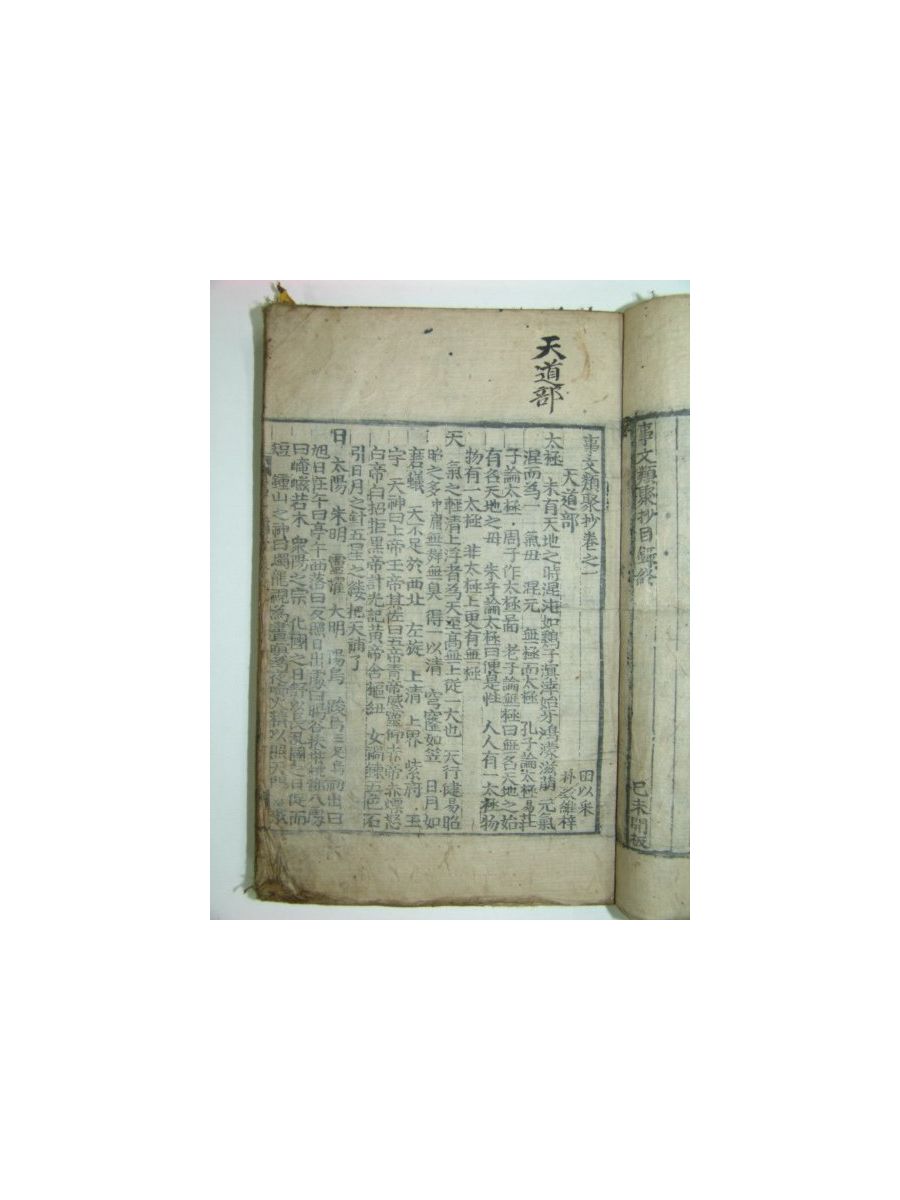 事文類聚抄目錄終
己未開板
天道部
事文類聚抄卷之一
天道部
田以采
朴致維梓
太極 未有天地之時混沌如鷄子溟涬始牙鴻濛滋萌 元氣
混而爲 氣母 混元 無極而太極 孔子論太極易
子論太極 周子作太極圖 老子論無極曰無名天地之始
有名天地之母 朱子論太極曰便是性 人人有一太極物
物有一太極 非太極上更有無極
天 氣之輕清上浮者爲天至高無上從一大也 天行健易昭
昭之多中庸無聲無臭 得一以清 穹窿如笠 日月如
磨蟻 天不足於西北 左旋 上清 上界 紫府 玉
字 天神曰上帝 其佐曰五帝青帝靈威仰赤帝赤熛怒
白帝白招拒黑帝 光記黃帝含樞紐 女媧鍊五色石
引日月之針五星之縷把天補了
日 太陽 朱明 靈曜 大明 陽烏
旭日在午曰亭午 西落曰反照日出
曰崦嵫若木 衆陽之宗 化國之日舒以長 國之日促而
短 鍾山之神曰燭龍視爲晝